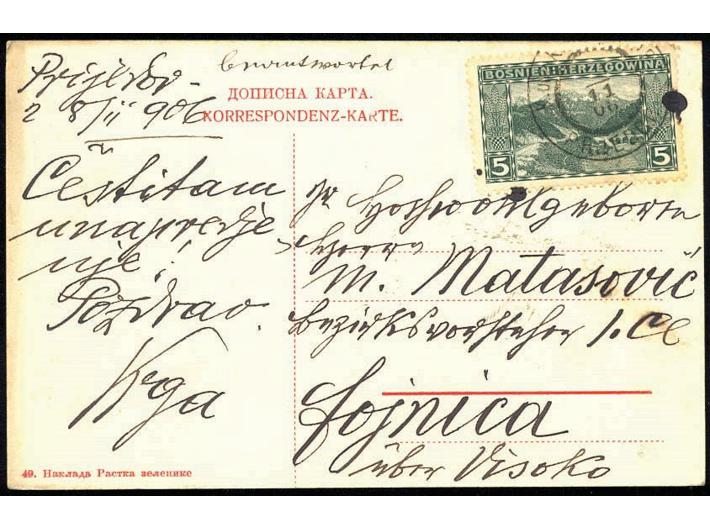 Prijedor
28/II 906
beantwortet
ДОПИСНА КАРТА.
KORRESPONDENZ-KARTE.
BOSNIEN-HERZEGOWINA
5 5
Čestitam
unapredje
nje!
Pozdrav.
Sr Hochwohlgeboren
Herrn
M. Matasović
Bezirksvorsteher I. Cl
Fojnica
über Visoko
49. Наклада Растка зеленике